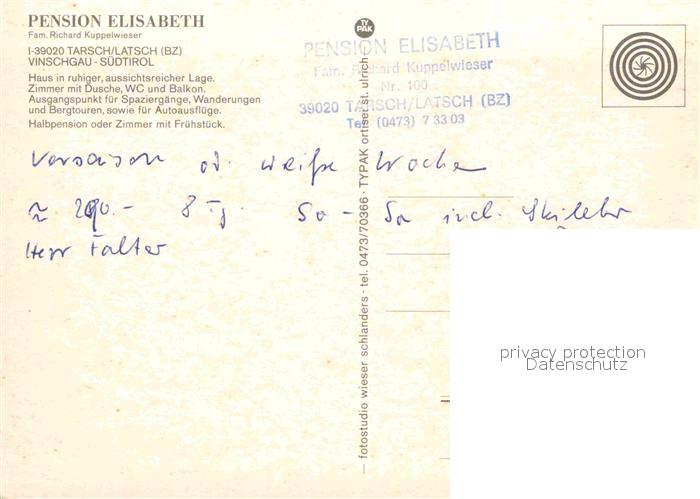 PENSION ELISABETH
Fam. Richard Kuppelwieser
I-39020 TARSCH/LATSCH (BZ)
VINSCHGAU - SÜDTIROL
Haus in ruhiger, aussichtsreicher Lage.
Zimmer mit Dusche, WC und Balkon.
Ausgangspunkt für Spaziergänge, Wanderungen
und Bergtouren, sowie für Autoausflüge.
Halbpension oder Zimmer mit Frühstück.
TY
PAK
PENSION ELISABETH
Fam. Richard Kuppelwieser
Nr. 100
39020 TARSCH/LATSCH (BZ)
Tel. (0473) 7 33 03
Vorsaison od. weiße Woche
≈ 290.- 8 Tg. So - So incl. Skilehr
Herr Falter
fotostudio wieser schlanders · tel. 0473/70366 · TYPAK ortisei st. ulrich
privacy protection
Datenschutz